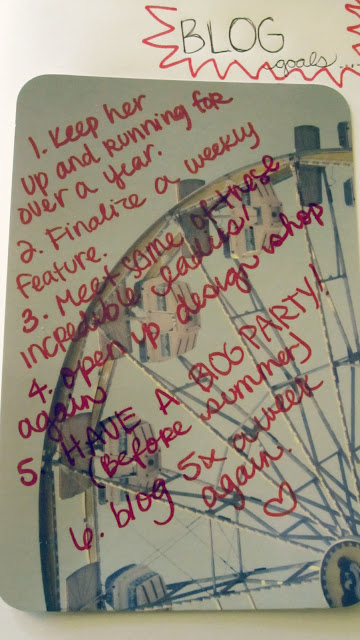 BLOG
goals...
1. Keep her
up and running for
over a year.
2. Finalize a weekly
feature.
3. Meet some of these
incredible ladies!
4. open up design shop
again
5. HAVE A BOG PARTY!
(Before summer)
6. blog 5x a week
again.